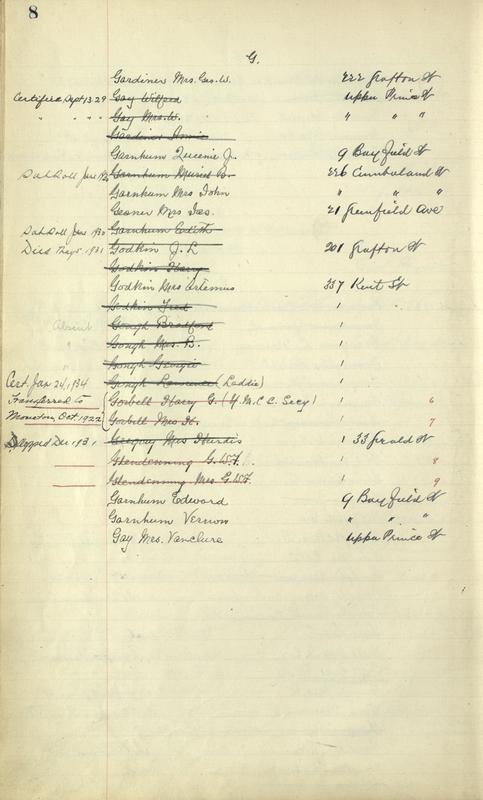 8
G.
Gardiner Mrs. Geo. W. 222 Grafton St
Certified Sept 13 29 Gay Wilfred Upper Prince St
" " " " Gay Mrs. W. " " "
Gardiner Annie
Garnhum Queenie J. 9 Bayfield St
S.A. Roll Jan Garnhum Muriel B. 226 Cumberland St
Garnhum Mrs John " " "
Gesner Mrs Jas. 21 Greenfield Ave
Roll Jan 1930 Garnhum Edith
Died 1931 Godkin J. L 201 Grafton St
Godkin Harry
Godkin Mrs Artemus 337 Kent St
Godkin Fred
Absent Gough Bradford
" Gough Mrs. B.
Gough Georgie
Cert. Jan 24, 1934 Gough Laurence (Laddie)
Transferred to Gorbell Harry G. (Y.M.C.A. Secy) 6
Moncton, Oct. 1922 Gorbell Mrs H. 7
Dropped Dec 1931 Gregory Mrs Hurdis 33 St
Glendenning G. W. F. 8
Glendenning Mrs G. W. F. 9
Garnhum Edward 9 Bayfield St
Garnhum Vernon " " "
Gay Mrs. Vanclure Upper Prince St